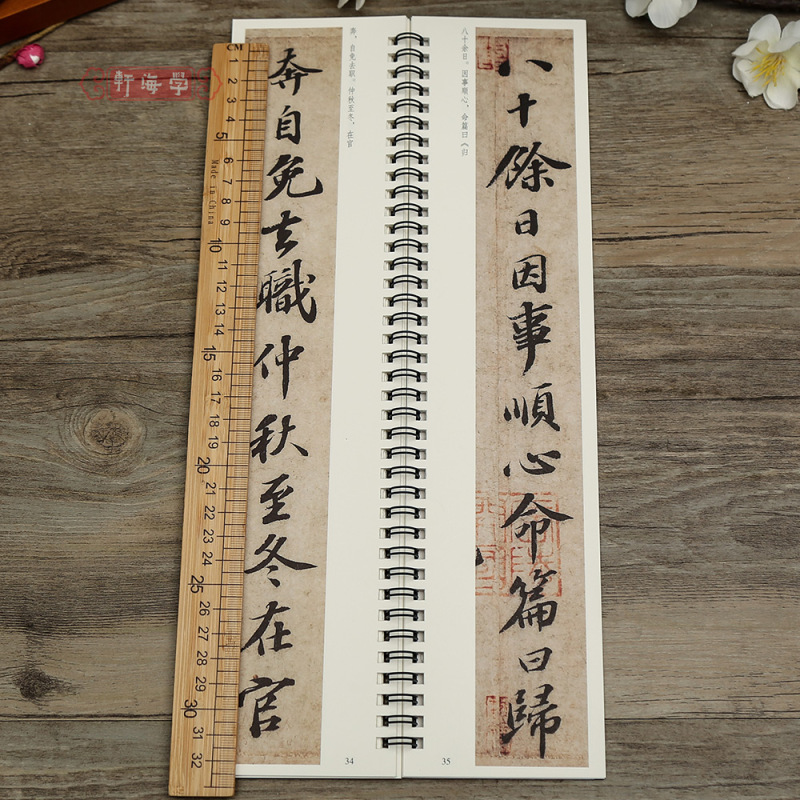 軒海學
CM
1 2 3 4 5 6 7 8 9 10 11 12 13 14 15 16 17 18 19 20 21 22 23 24 25 26 27 28 29 30 31 32
Made in China
奔自免去職仲秋至冬在官
奔，自免去职。仲秋至冬，在官
34
八十余日。因事顺心，命篇曰《归
八十餘日因事順心命篇曰歸
35